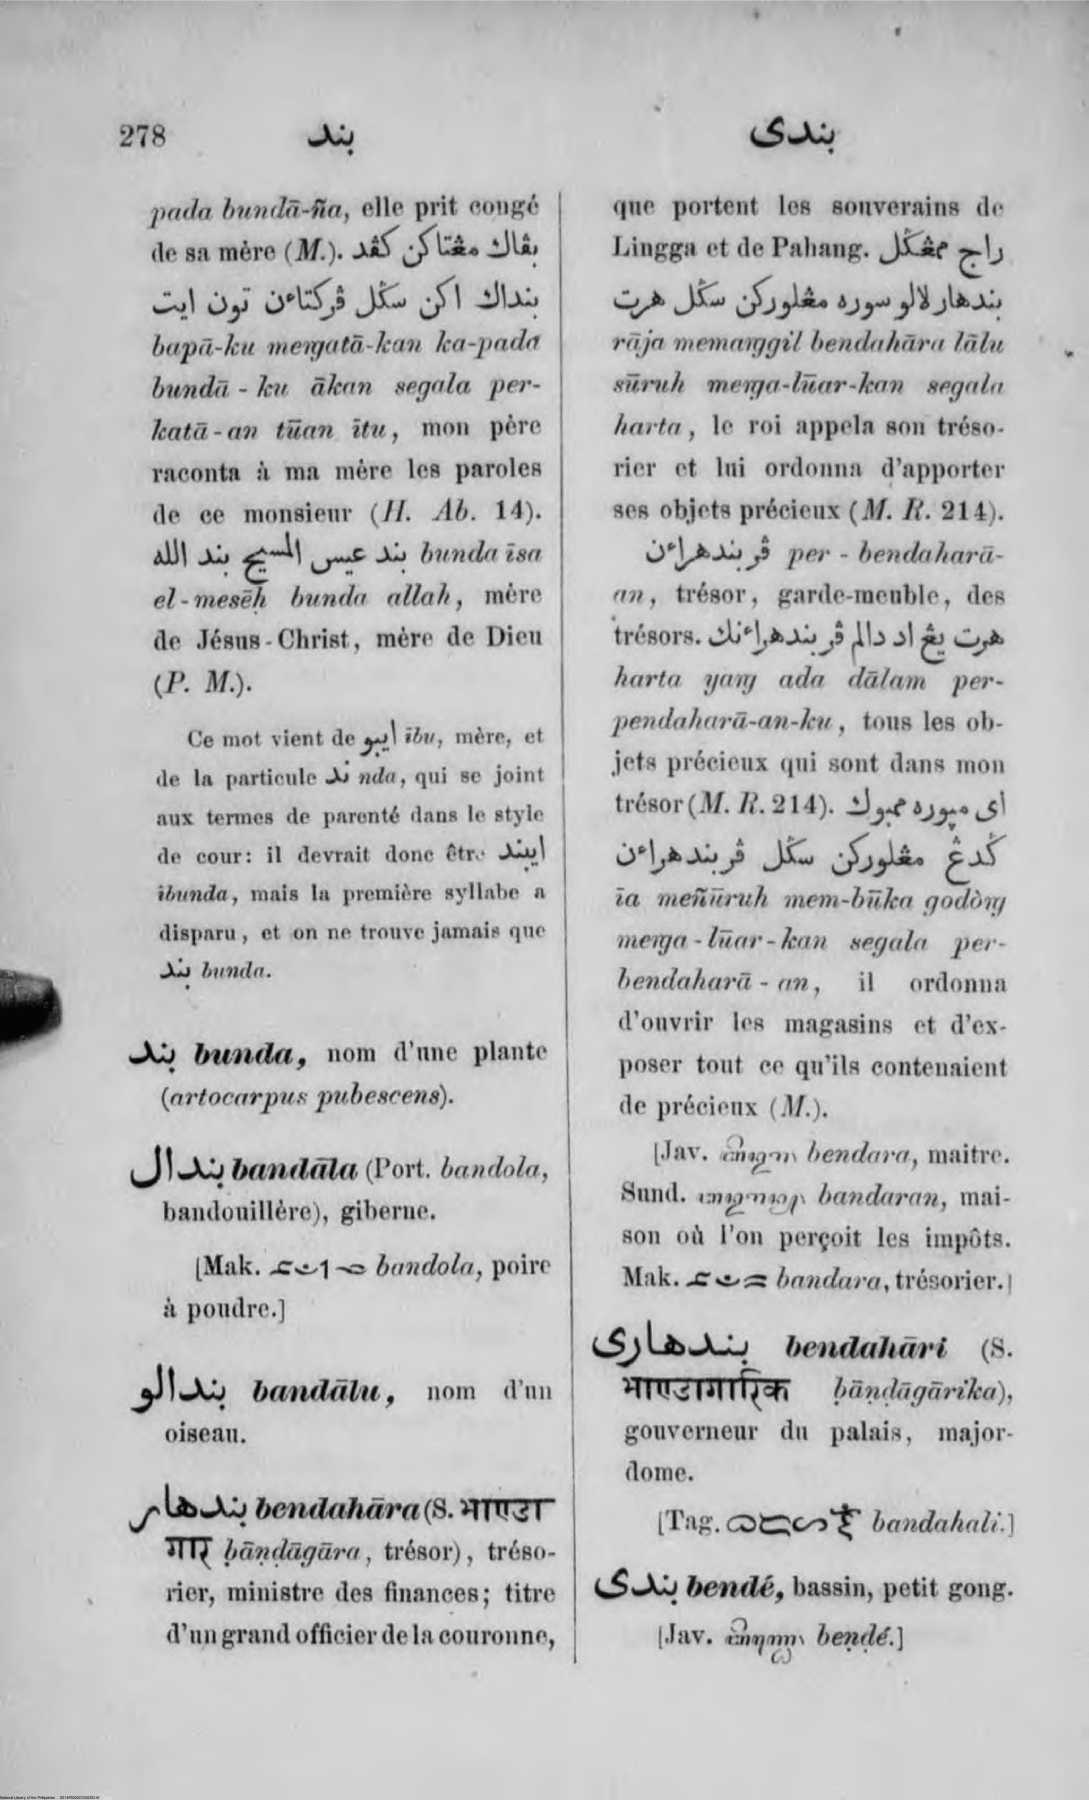 278
بند
بندى
pada bundā-ña, elle prit congé
de sa mère (M.). بڤاك مڠتاكن كڤد
بنداك اكن سڬل ڤركتاءن تون ايت
bapā-ku mengatā-kan ka-pada
bundā-ku ākan segala per-
katā-an tūan ītu, mon père
raconta à ma mère les paroles
de ce monsieur (H. Ab. 14).
بند عيسى المسيح بند الله bunda īsa
el-mesēḥ bunda allah, mère
de Jésus-Christ, mère de Dieu
(P. M.).
Ce mot vient de ايبو ību, mère, et
de la particule ند nda, qui se joint
aux termes de parenté dans le style
de cour: il devrait donc être ايبند
ībunda, mais la première syllabe a
disparu, et on ne trouve jamais que
بند bunda.
بند bunda, nom d'une plante
(artocarpus pubescens).
بندال bandāla (Port. bandola,
bandouillère), giberne.
[Mak. bandola, poire
à poudre.]
بندالو bandālu, nom d'un
oiseau.
بندهار bendahāra (S. भाण्डा
गार ḅāṇḍāgāra, trésor), tréso-
rier, ministre des finances; titre
d'un grand officier de la couronne,
que portent les souverains de
Lingga et de Pahang. راج ممڠڬل
بندهار لالو سوره مڠلوركن سڬل هرت
rāja memanggil bendahāra lālu
sūruh menga-lūar-kan segala
harta, le roi appela son tréso-
rier et lui ordonna d'apporter
ses objets précieux (M. R. 214).
ڤربندهراءن per-bendaharā-
an, trésor, garde-meuble, des
trésors. هرت يڠ اد دالم ڤربندهراءنك
harta yang ada dālam per-
pendaharā-an-ku, tous les ob-
jets précieux qui sont dans mon
trésor (M. R. 214). اى مڽوره ممبوك
ڬدڠ مڠلوركن سڬل ڤربندهراءن
īa meñūruh mem-būka godòng
menga-lūar-kan segala per-
bendaharā-an, il ordonna
d'ouvrir les magasins et d'ex-
poser tout ce qu'ils contenaient
de précieux (M.).
[Jav. bendara, maitre.
Sund. bandaran, mai-
son où l'on perçoit les impôts.
Mak. bandara, trésorier.]
بندهارى bendahāri (S.
भाण्डागारिक ḅāṇḍāgārika),
gouverneur du palais, major-
dome.
[Tag. bandahali.]
بندى bendé, bassin, petit gong.
[Jav. beṇḍé.]